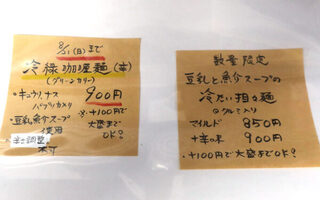 8/31(日)まで
冷緑咖喱麺(幸)
(グリーンカリー)
・キュウリ、ナス
パプリカ入り
900円
・豆乳と魚介スープ
使用
※+100円で
大盛まで
OK!
辛さ調整
不可
数量限定
豆乳と魚介スープの
冷たい担々麺
クルミ入り
マイルド 850円
+辛味 900円
・+100円で大盛までOK!